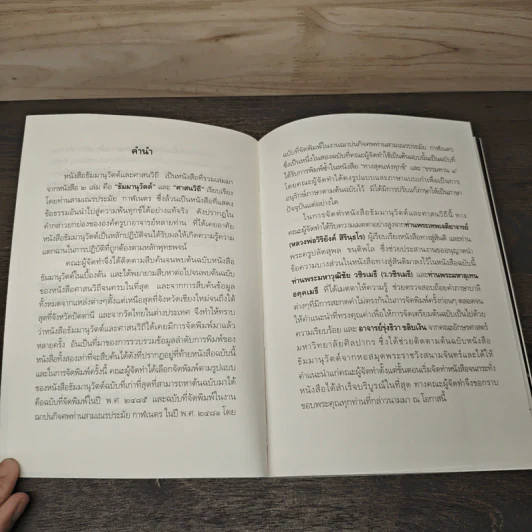 คำนำ
หนังสือธัมมานุวัตต์และศาสนวิธี เป็นหนังสือที่รวมเล่มมา
จากหนังสือ ๒ เล่ม คือ "ธัมมานุวัตต์" และ "ศาสนวิธี" เรียบเรียง
โดยท่านสามเณรประมัย กาฬเนตร ซึ่งล้วนเป็นหนังสือที่แสดง
ข้อธรรมอันนำไปสู่ความพ้นทุกข์ได้อย่างแท้จริง ดังปรากฏใน
คำกล่าวยกย่องขององค์ครูบาอาจารย์หลายท่าน ที่ได้เคยอาศัย
หนังสือธัมมานุวัตต์เป็นหลักปฏิบัติจนได้รับผลให้เกิดความรู้ความ
แตกฉานในการปฏิบัติที่ถูกต้องตามหลักพุทธพจน์
คณะผู้จัดทำจึงได้ติดตามสืบค้นจนพบต้นฉบับหนังสือ
ธัมมานุวัตต์ในเบื้องต้น และได้พยายามสืบหาต่อไปจนพบต้นฉบับ
ของหนังสือศาสนวิธีจนครบในที่สุด และจากการสืบค้นข้อมูล
ทั้งหมดจากแหล่งต่างๆตั้งแต่เหนือสุดที่จังหวัดเชียงใหม่จนถึงใต้
สุดที่จังหวัดปัตตานี และจากวัดไทยในต่างประเทศ จึงทำให้ทราบ
ว่าหนังสือธัมมานุวัตต์และศาสนวิธีได้เคยมีการจัดพิมพ์มาแล้ว
หลายครั้ง อันเป็นที่มาของการรวบรวมข้อมูลลำดับการพิมพ์ของ
หนังสือทั้งสองเท่าที่จะสืบค้นได้ดังที่ปรากฏอยู่ที่ท้ายหนังสือฉบับนี้
และในการจัดพิมพ์ครั้งนี้ คณะผู้จัดทำได้เลือกจัดพิมพ์ตามรูปแบบ
ของหนังสือธัมมานุวัตต์ฉบับที่เก่าที่สุดที่สามารถหาต้นฉบับมาได้
คือฉบับที่จัดพิมพ์ในปี พ.ศ. ๒๔๗๕ และฉบับที่จัดพิมพ์ในงาน
ฌาปนกิจศพท่านสามเณรประมัย กาฬเนตร ในปี พ.ศ. ๒๔๘๑ โดย
ฉบับที่จัดพิมพ์ในงานฌาปนกิจศพท่านสามเณรประมัย กาฬเนตร
ซึ่งเป็นหนึ่งในสองฉบับที่คณะผู้จัดทำใช้เป็นต้นแบบนั้นเป็นฉบับที่
ได้รับการพิมพ์ซ้ำในหนังสือ "ทางสุดแห่งทุกข์" และ "ธรรมทาน ๔"
โดยคณะผู้จัดทำได้คงรูปแบบและภาษาแบบเก่าเพื่อเป็นการ
อนุรักษ์ภาษาตามต้นฉบับไว้ มิได้มีการปรับแก้ภาษาให้เป็นภาษา
ปัจจุบันแต่อย่างใด
ในการจัดทำหนังสือธัมมานุวัตต์และศาสนวิธีนี้ ทาง
คณะผู้จัดทำได้รับความเมตตาอย่างสูงจากท่านพระเทพมงคลญาณ
(หลวงพ่อวิริยังค์ สิรินฺธโร) ผู้เรียบเรียงหนังสือทางสู่สันติ และท่าน
พระครูปลัดสุพล ขนฺติพโล ซึ่งช่วยประสานขออนุญาตนำ
ข้อความบางส่วนในหนังสือทางสู่สันติมาลงไว้ในหนังสือฉบับนี้
ที่ได้เมตตาให้ความรู้ ช่วยตรวจสอบถ้อยคำภาษาบาลี
ต่างๆที่มีการสะกดคำไม่ตรงกันในการจัดพิมพ์ครั้งก่อนๆ ตลอดจน
ให้คำแนะนำที่ทรงคุณค่าเพื่อให้การจัดเตรียมต้นฉบับเป็นไปด้วย
ความเรียบร้อย และ อาจารย์รุ่งธิวา ขลิบเงิน จากคณะอักษรศาสตร์
มหาวิทยาลัยศิลปากร ซึ่งได้ช่วยติดตามต้นฉบับหนังสือ
ธัมมานุวัตต์จากหอสมุดพระราชวังสนามจันทร์และได้ให้
คำแนะนำแก่คณะผู้จัดทำตั้งแต่ขั้นตอนเริ่มจัดทำหนังสือจนกระทั่ง
หนังสือได้สำเร็จบริบูรณ์ในที่สุด ทางคณะผู้จัดทำจึงขอกราบ
ขอบพระคุณทุกท่านที่กล่าวนามมา ณ โอกาสนี้